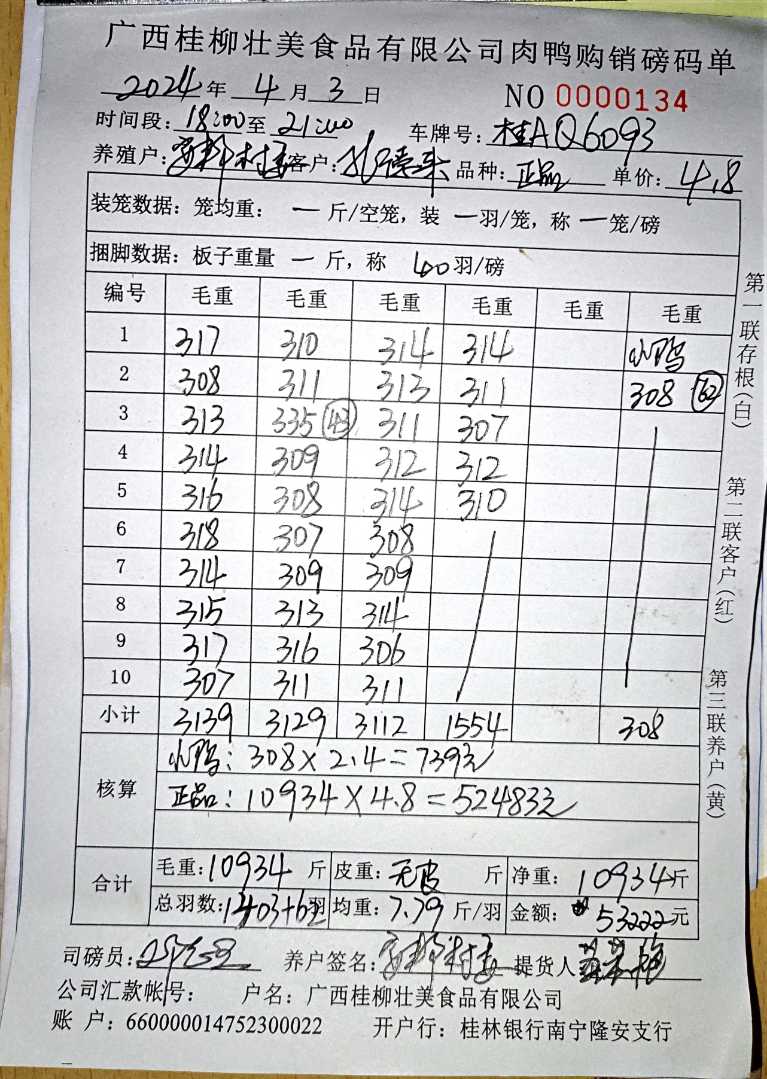 广西桂柳壮美食品有限公司肉鸭购销磅码单
2024年 4月 3日 NO 0000134
时间段: 18:00至 21:00 车牌号: 桂AQ6093
养殖户: 客户: 品种: 正品 单价: 4.8
装笼数据: 笼均重: 一 斤/空笼, 装 一羽/笼, 称 一笼/磅
捆脚数据: 板子重量 一 斤, 称 40羽/磅
编号 毛重 毛重 毛重 毛重 毛重 毛重
1 317 310 314 314 小鸭
2 308 311 313 311 308 62
3 313 335 43 311 307
4 314 309 312 312
5 316 308 314 310
6 318 307 308
7 314 309 309
8 315 313 314
9 317 316 306
10 307 311 311
小计 3139 3129 3112 1554 308
核算 小鸭: 308×2.4=739元
正品: 10934×4.8=52483元
合计 毛重: 10934 斤 皮重: 无皮 斤 净重: 10934斤
总羽数: 1403+62羽 均重: 7.79 斤/羽 金额: 53222元
司磅员: 养户签名: 提货人
公司汇款帐号: 户名: 广西桂柳壮美食品有限公司
账 户: 660000014752300022 开户行: 桂林银行南宁隆安支行
第一联存根(白)
第二联客户(红)
第三联养户(黄)